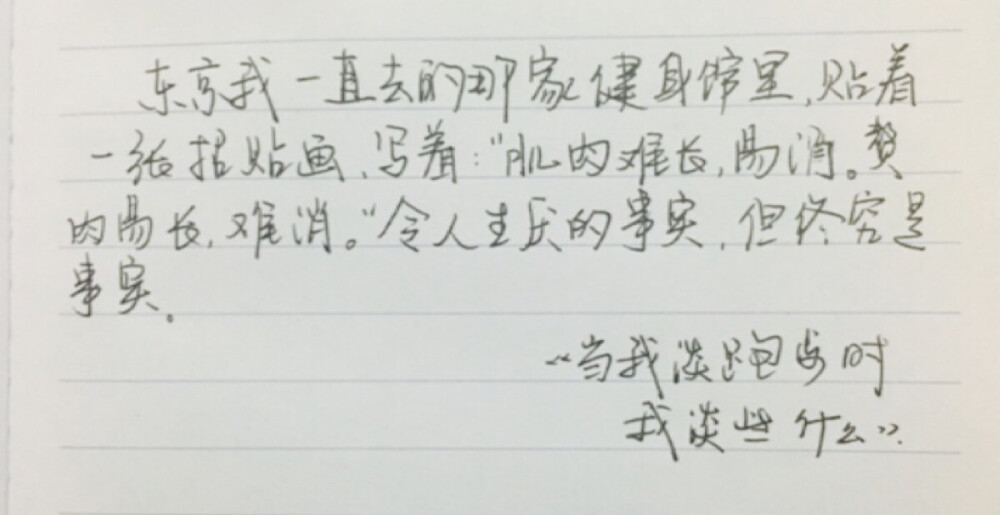 东京我一直去的那家健身馆里,贴着
一张招贴画,写着:"肌肉难长,易消。赘
肉易长,难消。"令人生厌的事实,但终究是
事实。
《当我谈跑步时
我谈些什么》